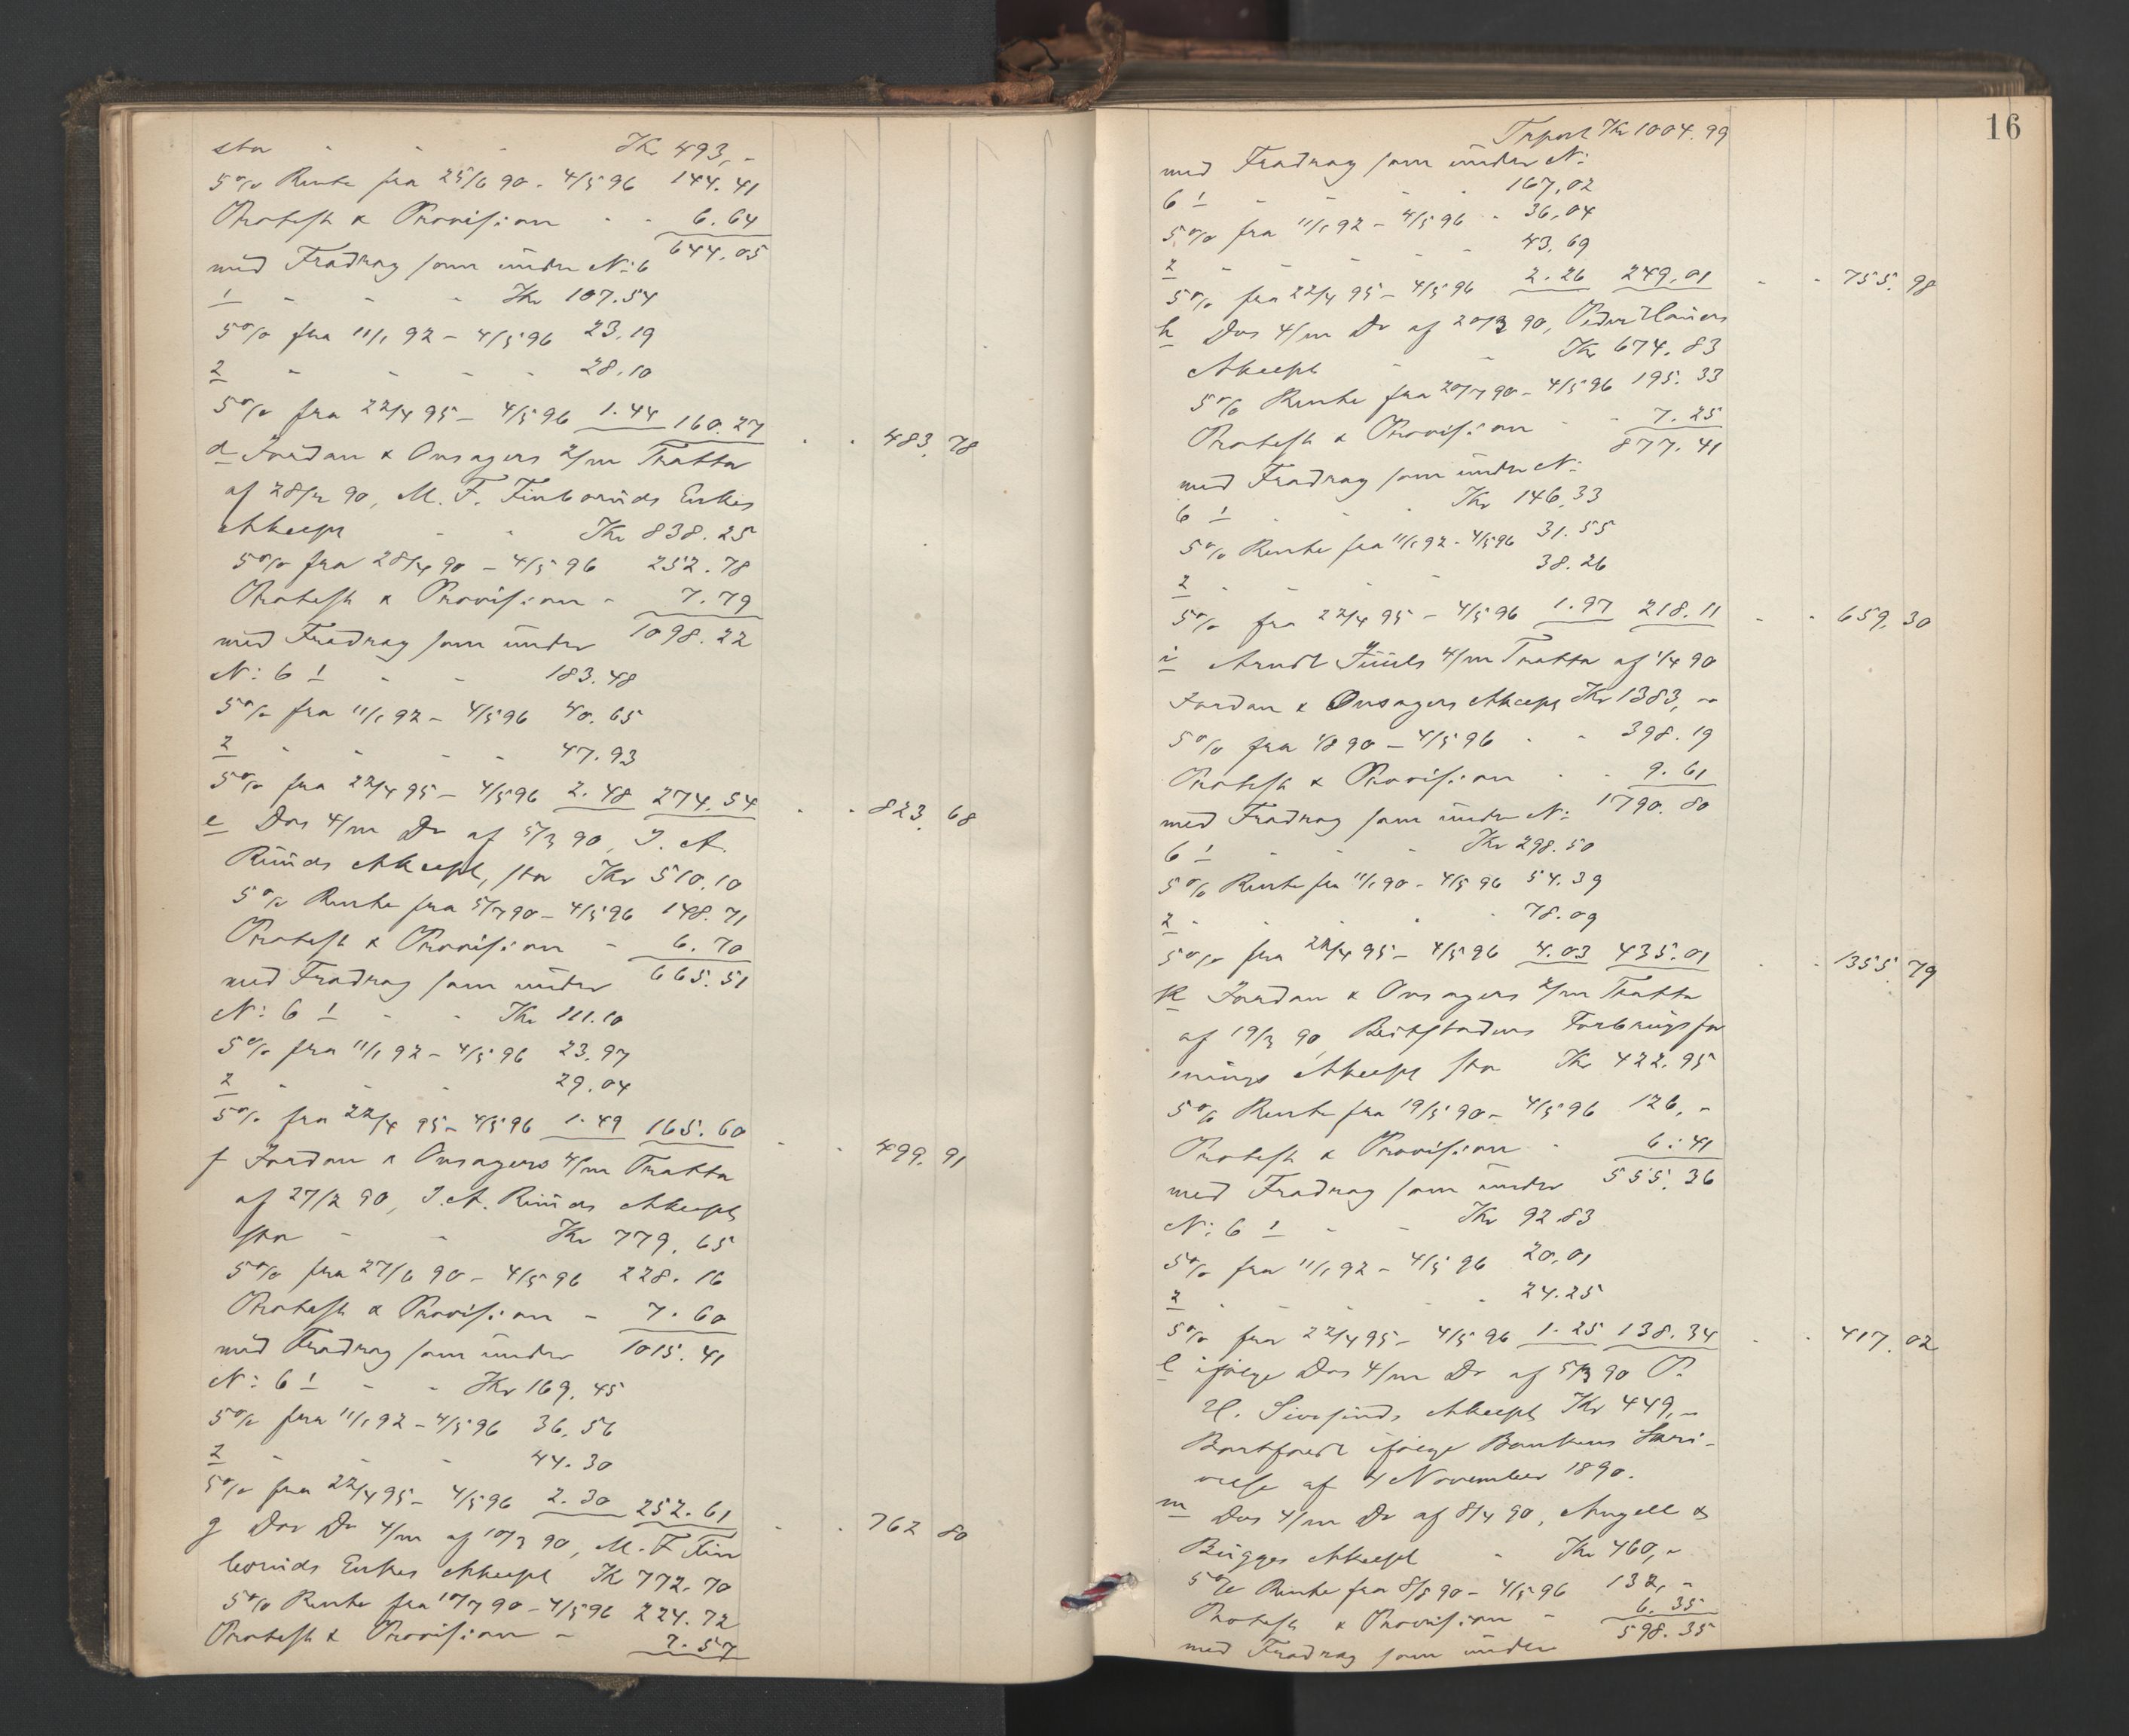 stor - - - Kr 493,-
5% Rente fra 25/6 90 - 4/5 96 144.41
Protest & Provision - - 6.64
med Fradrag som under N: 6 644.05
1 - - - Kr 107.54
5% fra 11/1 92 - 4/5 96 23.19
2 - - - - 28.10
5% fra 22/4 95 - 4/5 96 1.44 160.27 - - 483.78
d Jordan & Onsagers 2/m Tratta
af 28/2 90, M. F. Finborüds Enkes
Akcept - - Kr 838.25
5% fra 28/4 90 - 4/5 96 252.78
Protest & Provision - 7.79
med Fradrag som under 1098.22
N: 6 1 - - 183.48
5% fra 11/1 92 - 4/5 96 40.65
2 - - - - 47.93
5% fra 22/4 95 - 4/5 96 2.48 274.54 - - 823.68
e Dos 4/m Dr af 5/3 90, J. A.
Rüüds Akcept, stor Kr 510.10
5% Rente fra 5/7 90 - 4/5 96 148.71
Protest & Provision - 6.70
med Fradrag som under 665.51
N: 6 1 - - Kr 111.10
5% fra 11/1 92 - 4/5 96 23.97
2 - - - 29.04
5% fra 22/4 95 - 4/5 96 1.49 165.60 - - 499.91
f Jordan & Onsagers 4/m Tratta
af 27/2 90, J. A. Rüüds Akcept
stor - - Kr 779.65
5% fra 27/6 90 - 4/5 96 228.16
Protest & Provision - 7.60
med Fradrag som under 1015.41
N: 6 1 - - Kr 169.45
5% fra 11/1 92 - 4/5 96 36.56
2 - - - 44.30
5% fra 22/4 95 - 4/5 96 2.30 252.61 - - 762.80
g Dos Dr 4/m af 10/3 90, M. F. Fin
borüds Enkes Akcept Kr 772.70
5% Rente fra 10/7 90 - 4/5 96 224.72
Protest & Provision - 7.57
16
Trport Kr 1004.99
med Fradrag som under N:
6 1 - - - 167.02
5% fra 11/1 92 - 4/5 96 - 36.04
2 - - - - 43.69
5% fra 22/4 95 - 4/5 96 2.26 249.01 - - 755.98
h Dos 4/m Dr af 20/3 90,
Akcept - - Kr 674.83
5% Rente fra 20/7 90 - 4/5 96 195.33
Protest & Provision - - 7.25
med Fradrag som under N: 877.41
6 1 - - - Kr 146.33
5% Rente fra 11/1 92 - 4/5 96 31.55
2 - - - 38.26
5% fra 22/4 95 - 4/5 96 1.97 218.11 - - 659.30
i Arndt Jüüls 4/m Tratta af 1/4 90
Jordan & Onsagers Akcept Kr 1383,-
5% fra 1/8 90 - 4/5 96 - - 398.19
Protest & Provision - - 9.61
med Fradrag som under N: 1790.80
6 1 - - - Kr 298.50
5% Rente fra 11/1 90 - 4/5 96 54.39
2 - - - 78.09
5% fra 22/4 95 - 4/5 96 4.03 435.01 - - 1355.79
k Jordan & Onsagers 2/m Tratta
af 19/3 90, Beitstadens Forbrügsfor
enings Akcept stor Kr 422.95
5% Rente fra 19/5 90 - 4/5 96 126,-
Protest & Provision - 6.41
med Fradrag som under 555.36
N: 6 1 - - Kr 92.83
5% fra 11/1 92 - 4/5 96 20.01
2 - - - - 24.25
5% fra 22/4 95 - 4/5 96 1.25 138.34 - - 417.02
l ifølge Dos 4/m Dr af 5/3 90 P.
Akcept Kr 449,-
Bortfaldt ifølge Bankens Skri-
velse af 4 November 1890.
m Dos 4/m Dr af 8/4 90, Angell &
Bügges Akcept - Kr 460,-
5% Rente fra 8/8 90 - 4/5 96 132,-
Protest & Provision - 6.35
med Fradrag som under 598.35